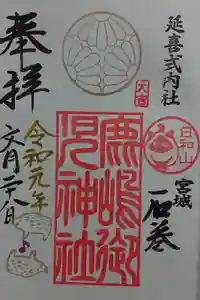 延喜式内社
日和山
宮城
石巻
鹿嶋御
児神社
奉拝
令和元年
文月二十八日